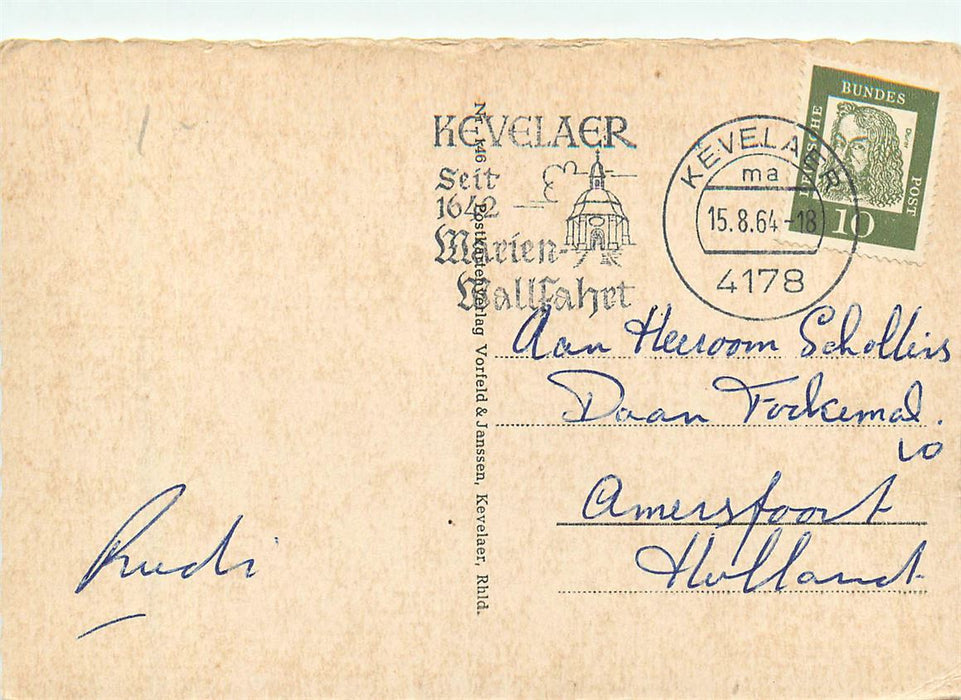 KEVELAER
Seit
1642
Marien-
Wallfahrt
KEVELAER
ma
15.8.64-18
4178
DEUTSCHE
BUNDES
POST
Dürer
10
Nr. 146 Postkartenverlag Vorfeld & Janssen, Kevelaer, Rhld.
Aan Heeroom Schollins
Daan Fockemal.
10
Amersfoort
Holland
Rudi